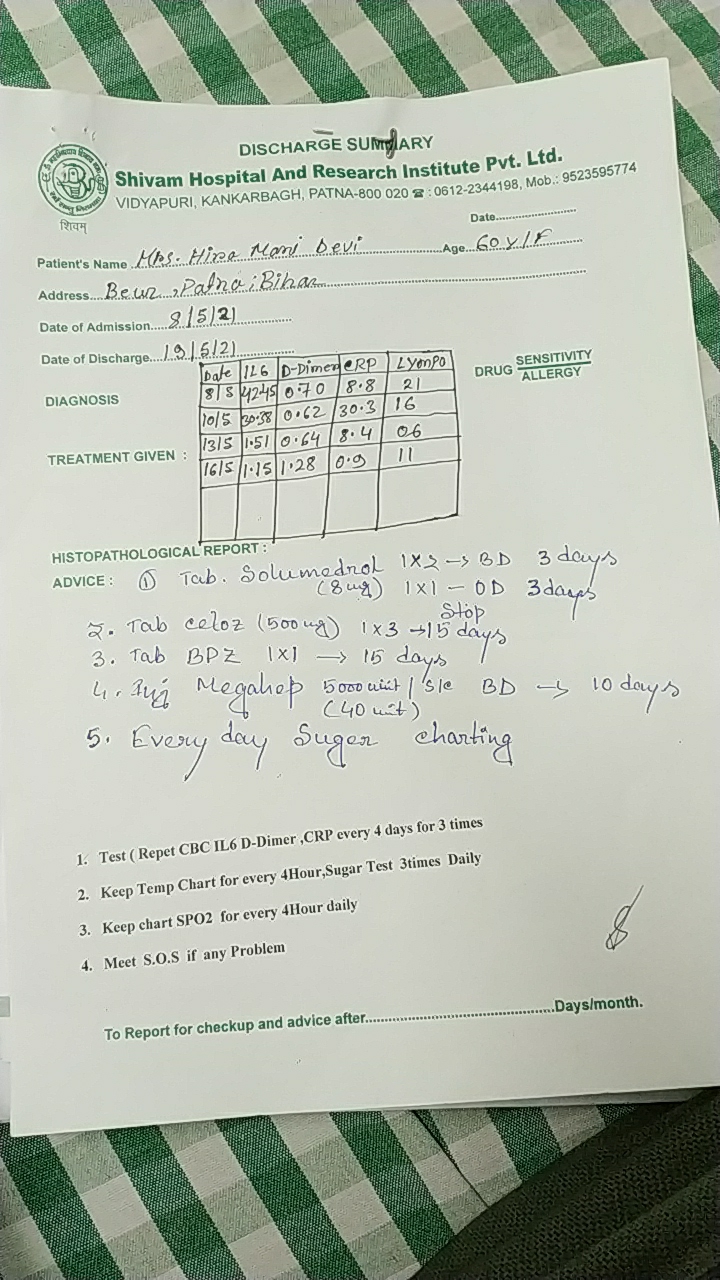 DISCHARGE SUMMARY
Shivam Hospital And Research Institute Pvt. Ltd.
VIDYAPURI, KANKARBAGH, PATNA-800 020 ☎ : 0612-2344198, Mob.: 9523595774
शिवम्
Date
Patient's Name Mrs. Hira Mani Devi Age 60 Y/F
Address Beur, Patna, Bihar
Date of Admission 8/5/21
Date of Discharge 19/5/21
Date IL6 D-Dimer CRP LYmPo
8/5 4245 0.70 8.8 21
10/5 30.38 0.62 30.3 16
13/5 1.51 0.64 8.4 06
16/5 1.15 1.28 0.9 11
DRUG SENSITIVITY
ALLERGY
DIAGNOSIS
TREATMENT GIVEN :
HISTOPATHOLOGICAL REPORT :
ADVICE : ① Tab. Solumedrol 1X2 → BD 3 days
(8mg) 1X1 - OD 3days
Stop
2. Tab celoz (500mg) 1X3 → 15 days
3. Tab BPZ 1X1 → 15 days
4. Inj Megahep 5000 unit / S/c BD → 10 days
(40 unit)
5. Every day Suger charting
1. Test ( Repet CBC IL6 D-Dimer ,CRP every 4 days for 3 times
2. Keep Temp Chart for every 4Hour,Sugar Test 3times Daily
3. Keep chart SPO2 for every 4Hour daily
4. Meet S.O.S if any Problem
To Report for checkup and advice after Days/month.